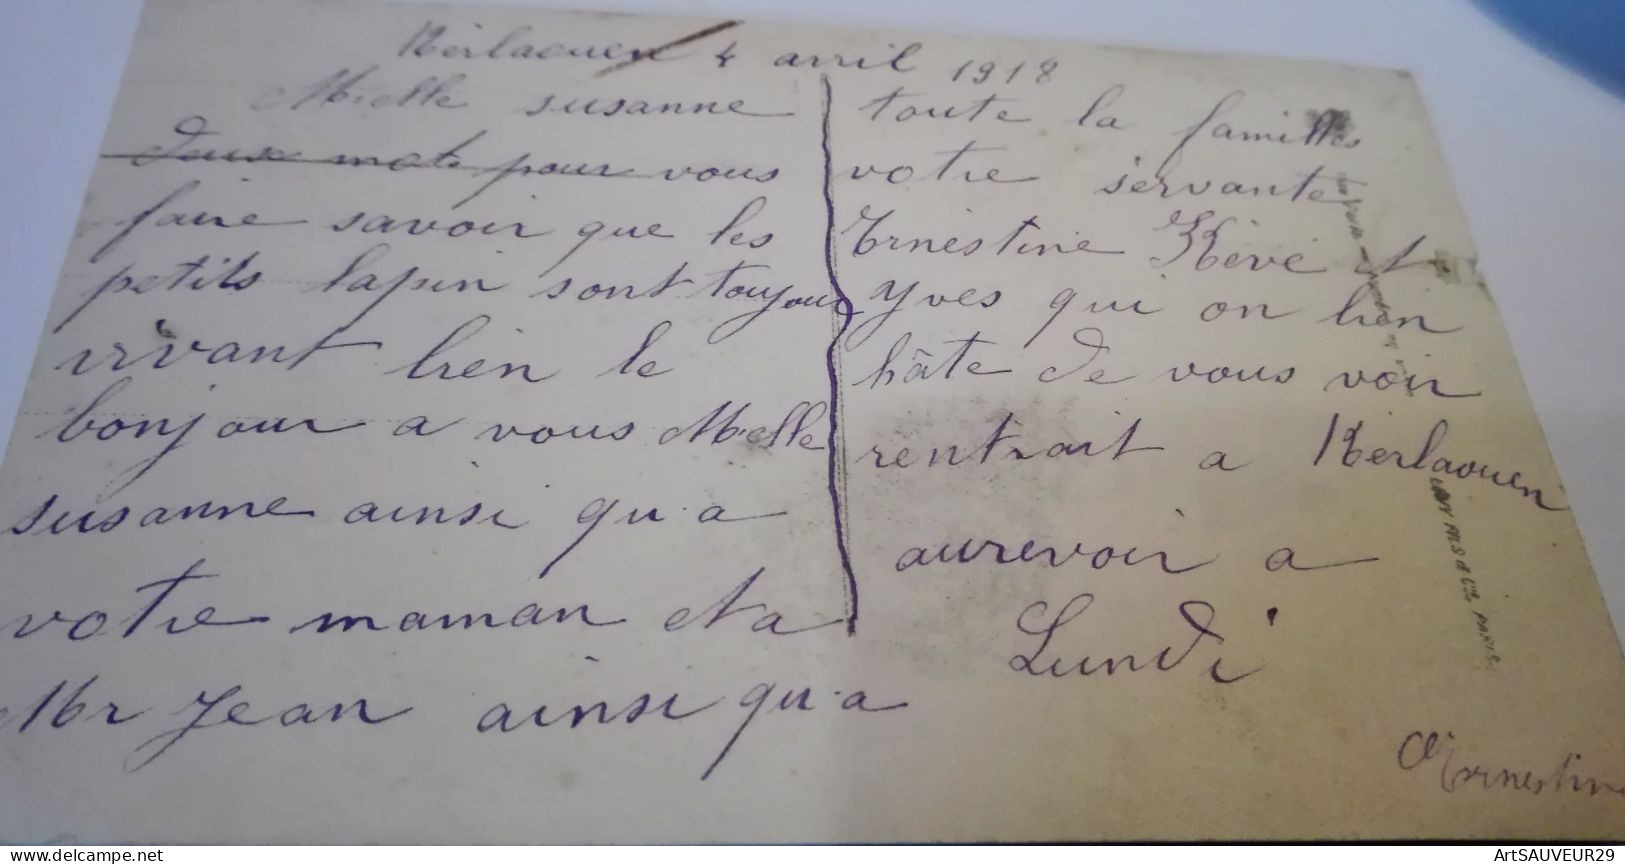 Kerlaouen 4 avril 1918
Mlle susanne
deux mots pour vous
faire savoir que les
petits lapin sont toujour
vivant bien le
bonjour a vous Melle
susanne ainsi qu'a
votre maman et a
Mr Jean ainsi qu'a
toute la familles
votre servante
Ernestine Kéré et
Yves qui on bien
hâte de vous voir
rentrait a Kerlaouen
aurevoir a
Lundi
Ernestine
LÉVY FILS & Cie, PARIS
ArtSAUVEUR29